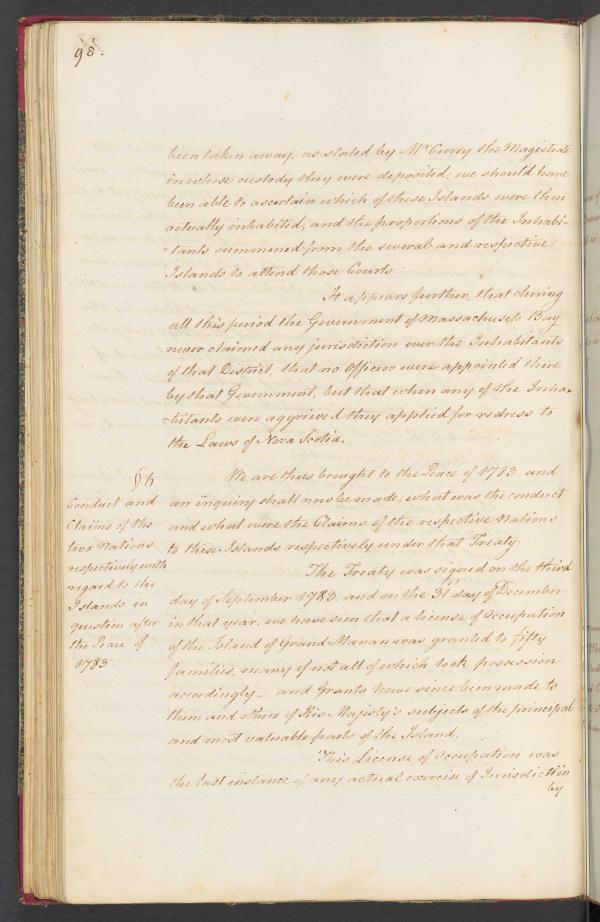 98.
been taken away, as stated by Mr Currey the Magistrate
in whose custody they were deposited, we should have
been able to ascertain which of these Islands were then
actually inhabited, and the proportions of the Inhabi-
-tants summoned from the several and respective
Islands to attend those Courts.
It appears further, that during
all this period the Government of Massachusets Bay
never claimed any jurisdiction over the Inhabitants
of that District, that no Officers were appointed there
by that Government, but that when any of the Inha-
-bitants were aggrieved they applied for redress to
the Laws of Nova Scotia.
We are thus brought to the Peace of 1783 and
an inquiry shall now be made, what was the conduct
and what were the Claims of the respective Nations
to these Islands respectively under that Treaty.
6th
Conduct and
Claims of the
two Nations
respectively with
regard to the
Islands in
question after
the Peace of
1783
The Treaty was signed on the third
day of September 1783, and on the 31st day of December
in that year, we have seen that a license of Occupation
of the Island of Grand Manan was granted to fifty
families, many if not all of which took possession
accordingly – and Grants have since been made to
them and others of His Majesty's subjects of the principal
and most valuable parts of the Island.
This License of Occupation was
the last instance of any actual exercise of Jurisdiction
by